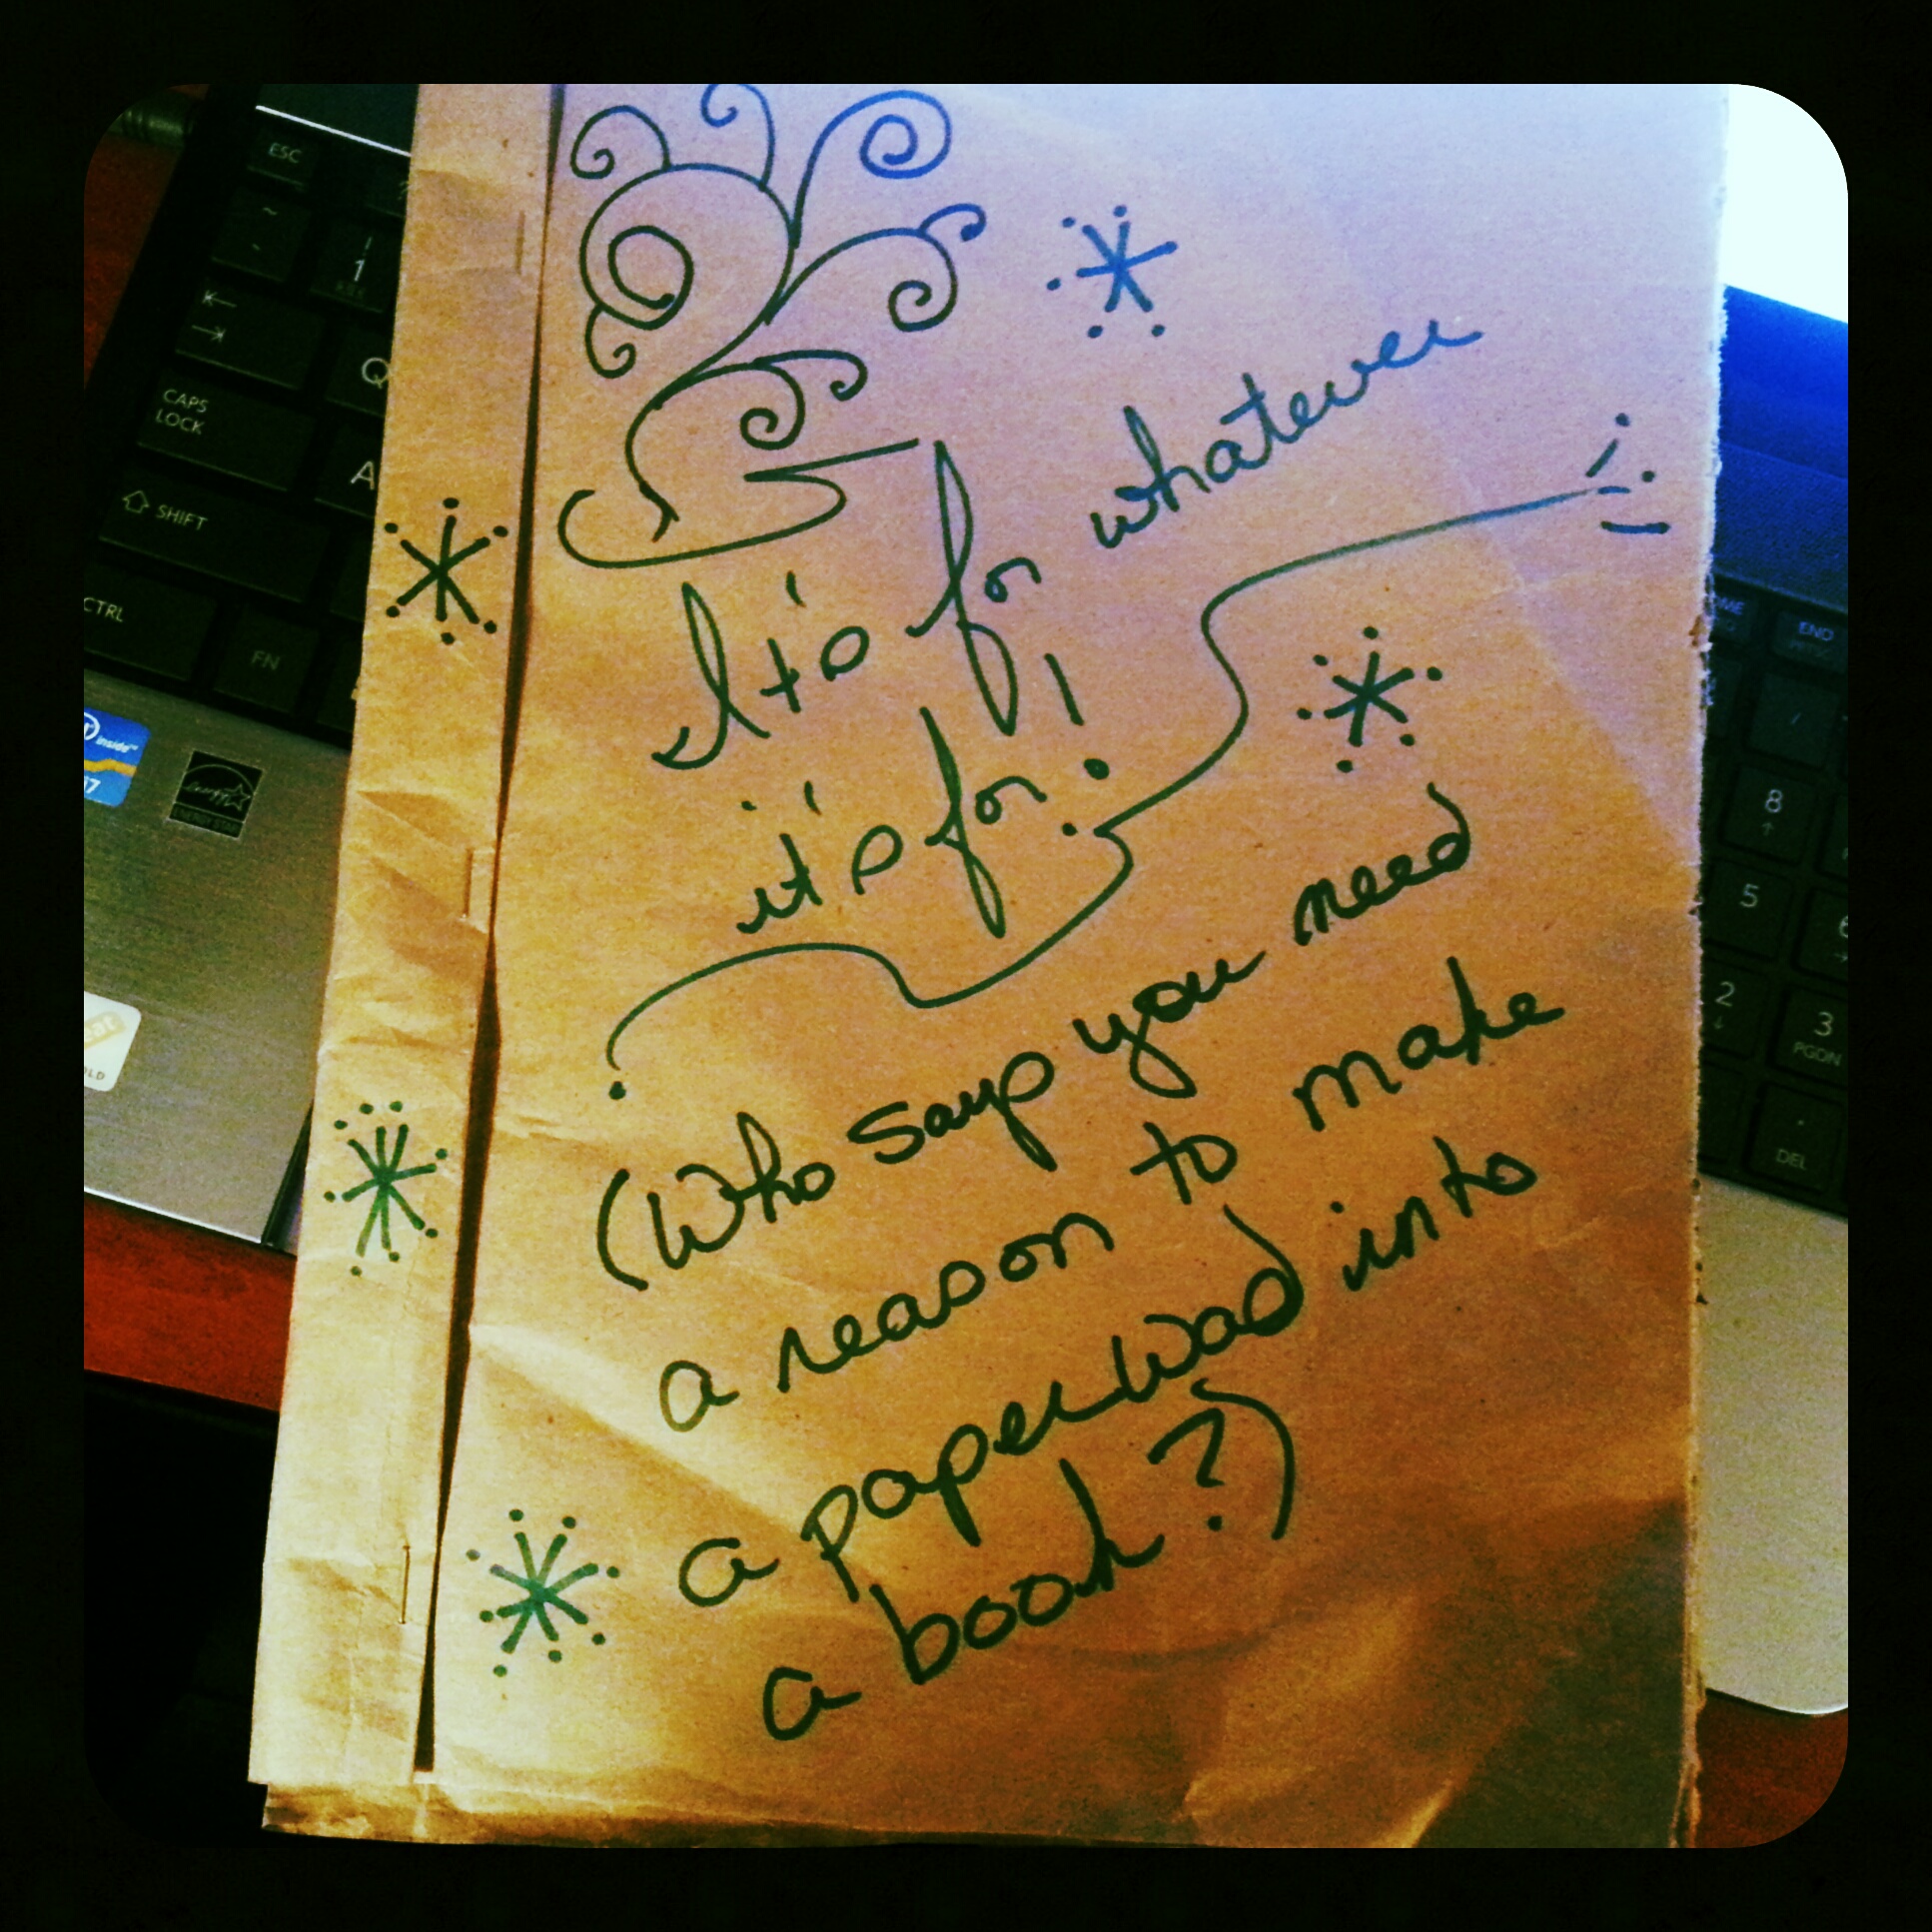 It's for whatever
it's for!
(Who says you need
a reason to make
a paper wad into
a book?)
ESC
~
!
1
Q
CAPS
LOCK
A
SHIFT
CTRL
FN
inside™
ENERGY STAR
END
8
5
2
3
PGDN
.
DEL